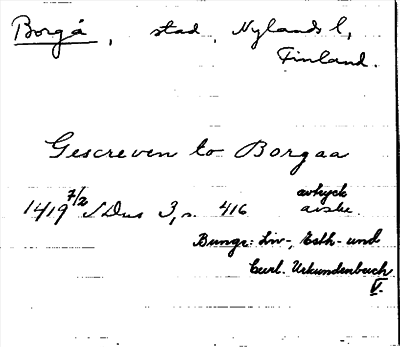 Borgå, stad, Nylands l,
Finland.
Gescreven to Borgaa
1419 7/2 SDus 3, s. 416 avtryck
avskr.
Bunge: Liv-, Esth- und
Curl. Urkundenbuch
V.